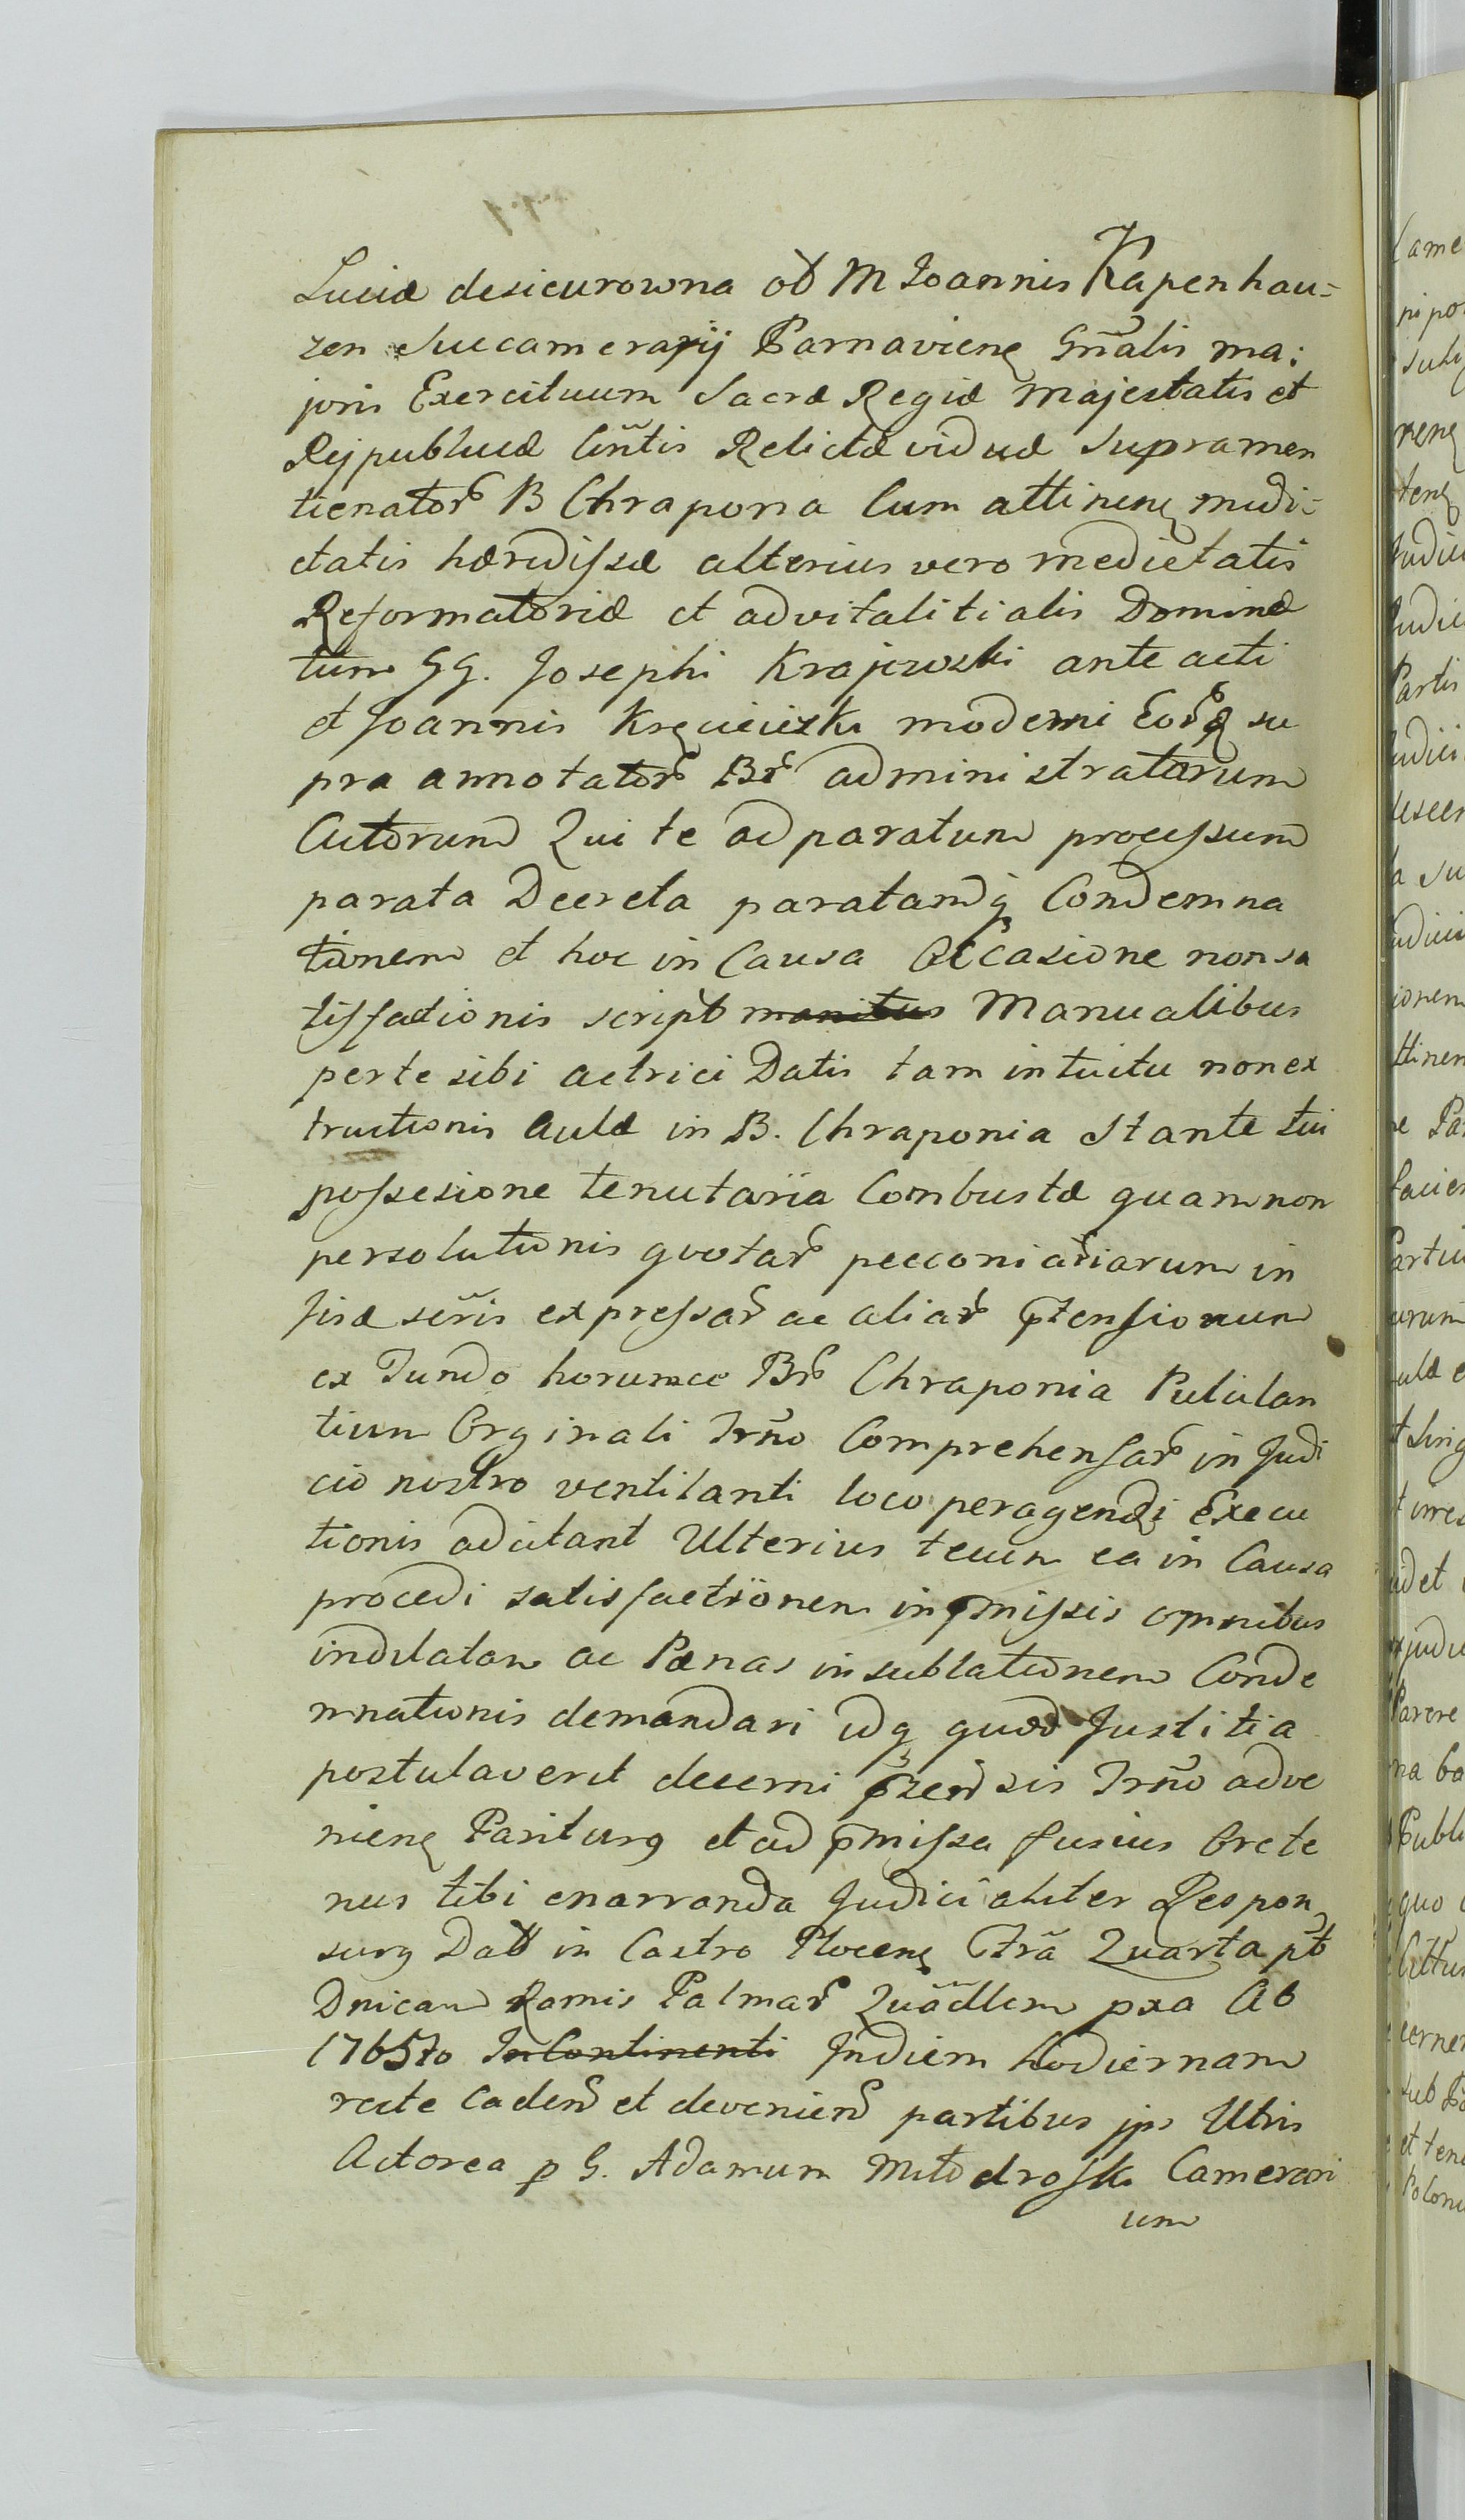 Luciæ desicurowna oƀ M Joannis Kapenhau-
zen Succamerarij Parnavienę Gn̄alis ma:
joris Exercituum Sacræ Regiæ Majestatis et
Rejpublucæ Cñtis Relictæ viduæ Supramen
tienator̃ B Chrapona Cum attinenę medi-
etatis hæredissæ alterius vero medietatis
Reformatoriæ et advitalitialis Dominæ
tum GG. Josephi Krajewski ante acti
et Joannis moderni Eor̃q su
pra annotator̃ Br̃ administratorum
Actorum Qui te ad paratum processum
parata Decreta paratamq Condemna
tionem et hoc in Causa Occasione non sa
tisfactionis script manibus Manualibus
per te sibi actrici Datis tam intuitu non ex
tructionis Aulæ in B. Chraponia Stante tui
possesione tenutaria Combustæ quam non
persolutionis qvotar̃ pecconiariarum in
firæ sẽris expressar̃ ac aliar̃ p̃tensionum
ex Fundo horumce Br̃ Chraponia Pululan
tium Orginali Trño Comprehensar̃ in Judi
cio nostro ventilanti loco peragendę Execu
tionis adcitant Ulterius tecum ea in Causa
procedi satisfactionem in p̃missis omnibus
indilatam ac Pænas in sublationem Conde
mnationis demandari idq quod Justitia
postulaverit decerni p̃zendis Trño adve
nienę Pariturg et ad p̃missa fusius Orete
nus tibi enarranda Judicialiter Respon
surg Datt in Castro Plocenę Fr̃ia Quarta pt
Dnicam Ramis Palmar̃ Quãdlem pxa Ao
1765to In Continenti In diem hodiernam
recte Caden̄ et devenien̄ partibus jps Utris
Actorea p G. Adamum Camerari
um